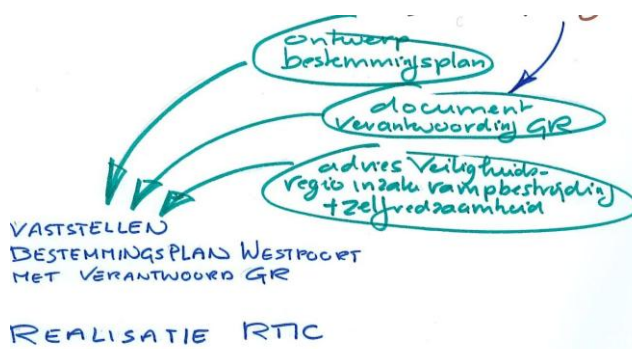 ontwerp
bestemmingsplan
document
verantwoording GR
advies Veiligheids-
regio inzake rampbestrijding
+ zelfredzaamheid
VASTSTELLEN
BESTEMMINGSPLAN WESTPOORT
MET VERANTWOORD GR
REALISATIE RTIC